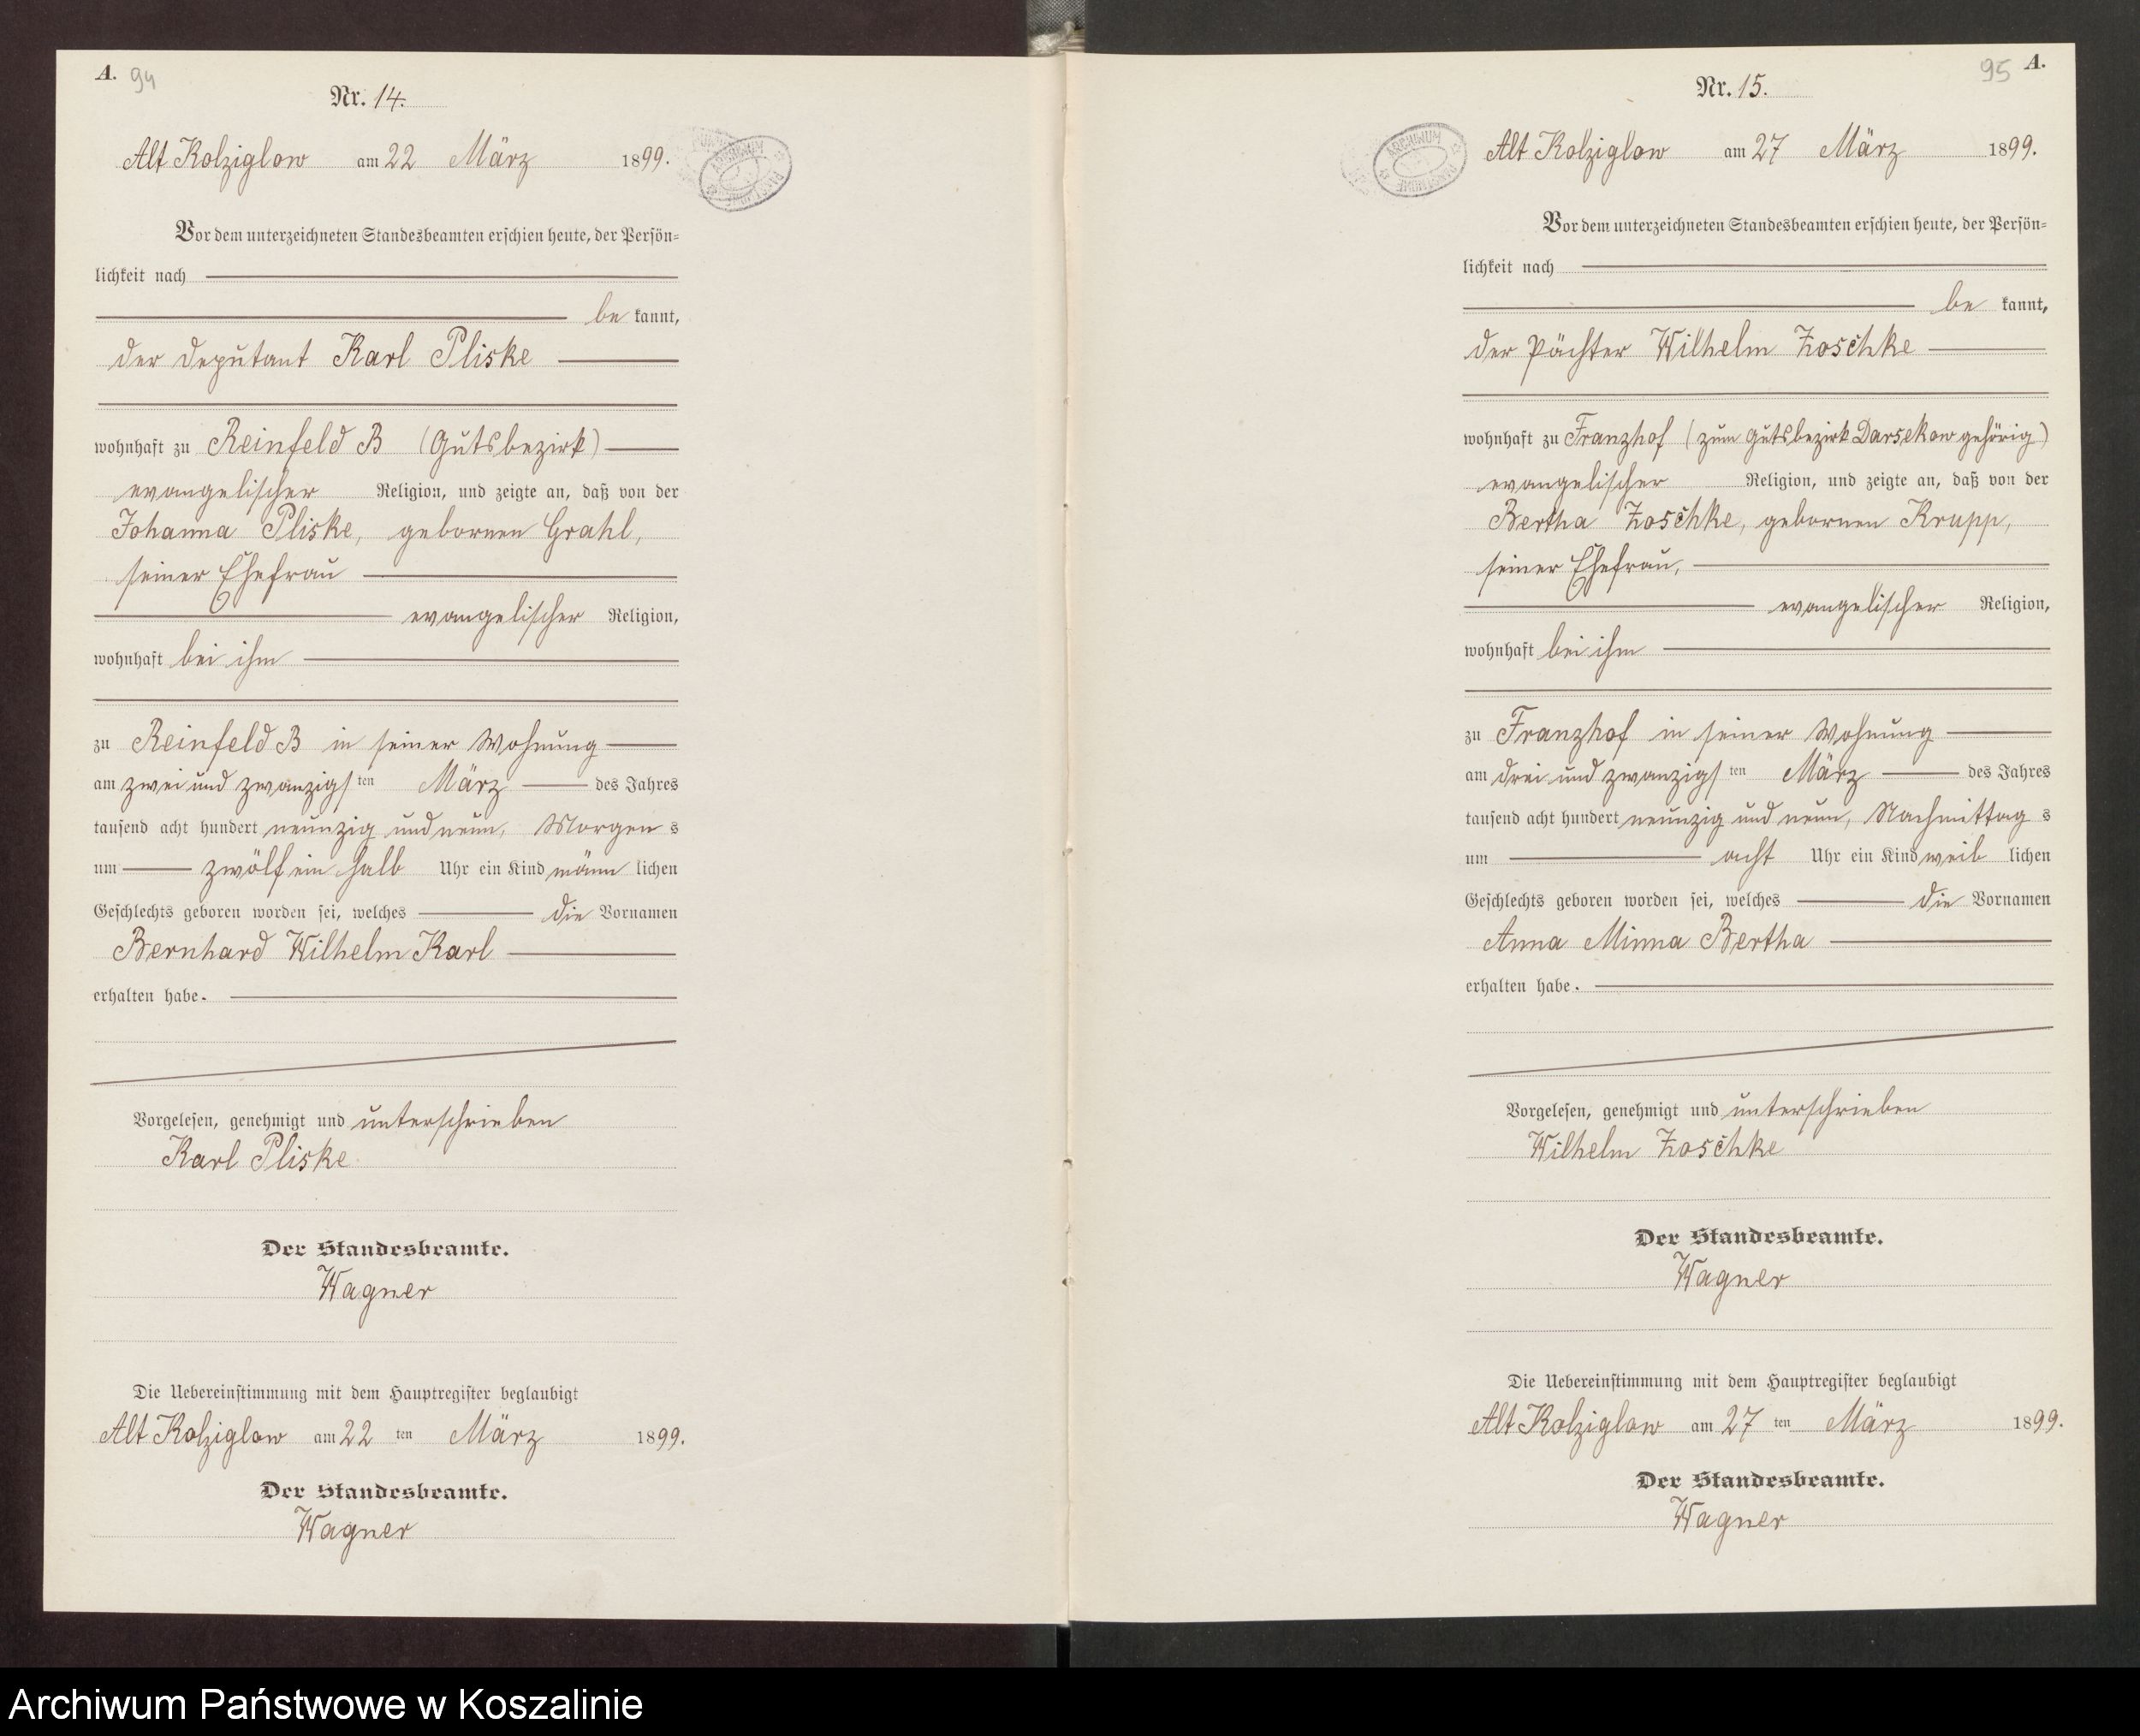 A. 94
Nr. 14.
Alt Kolziglow am 22 März 1899.
Vor dem unterzeichneten Standesbeamten erschien heute, der Persön-
lichkeit nach
be kannt,
der Deputant Karl Pliske
wohnhaft zu Reinfeld B (Gutsbezirk)
evangelischer Religion, und zeigte an, daß von der
Johanna Pliske, gebornen Grahl,
seiner Ehefrau
evangelischer Religion,
wohnhaft bei ihm
zu Reinfeld B in seiner Wohnung
am zwei und zwanzigsten März des Jahres
tausend acht hundert neunzig und neun, Morgens
um zwölf ein halb Uhr ein Kind männlichen
Geschlechts geboren worden sei, welches die Vornamen
Bernhard Wilhelm Karl
erhalten habe.
Vorgelesen, genehmigt und unterschrieben
Karl Pliske
Der Standesbeamte.
Wagner
Die Uebereinstimmung mit dem Hauptregister beglaubigt
Alt Kolziglow am 22 ten März 1899.
Der Standesbeamte.
Wagner
ARCHIWUM PAŃSTWOWE
95 A.
Nr. 15.
Alt Kolziglow am 27 März 1899.
Vor dem unterzeichneten Standesbeamten erschien heute, der Persön-
lichkeit nach
be kannt,
der Pächter Wilhelm Zoschke
wohnhaft zu Franzhof (zum Gutsbezirk Darsekow gehörig)
evangelischer Religion, und zeigte an, daß von der
Bertha Zoschke, gebornen Krupp,
seiner Ehefrau,
evangelischer Religion,
wohnhaft bei ihm
zu Franzhof in seiner Wohnung
am drei und zwanzigsten März des Jahres
tausend acht hundert neunzig und neun, Nachmittags
um acht Uhr ein Kind weiblichen
Geschlechts geboren worden sei, welches die Vornamen
Anna Minna Bertha
erhalten habe.
Vorgelesen, genehmigt und unterschrieben
Wilhelm Zoschke
Der Standesbeamte.
Wagner
Die Uebereinstimmung mit dem Hauptregister beglaubigt
Alt Kolziglow am 27 ten März 1899.
Der Standesbeamte.
Wagner
ARCHIWUM PAŃSTWOWE
Archiwum Państwowe w Koszalinie